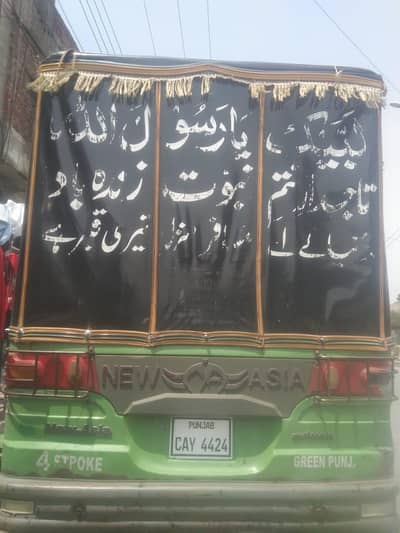 لبیک یا رسول اللہ
تاجدار ختم نبوت زندہ باد
تیری قبر ہے
NEW ASIA
New Asia
PUNJAB
CAY 4424
4 STROKE
GREEN PUNJ.